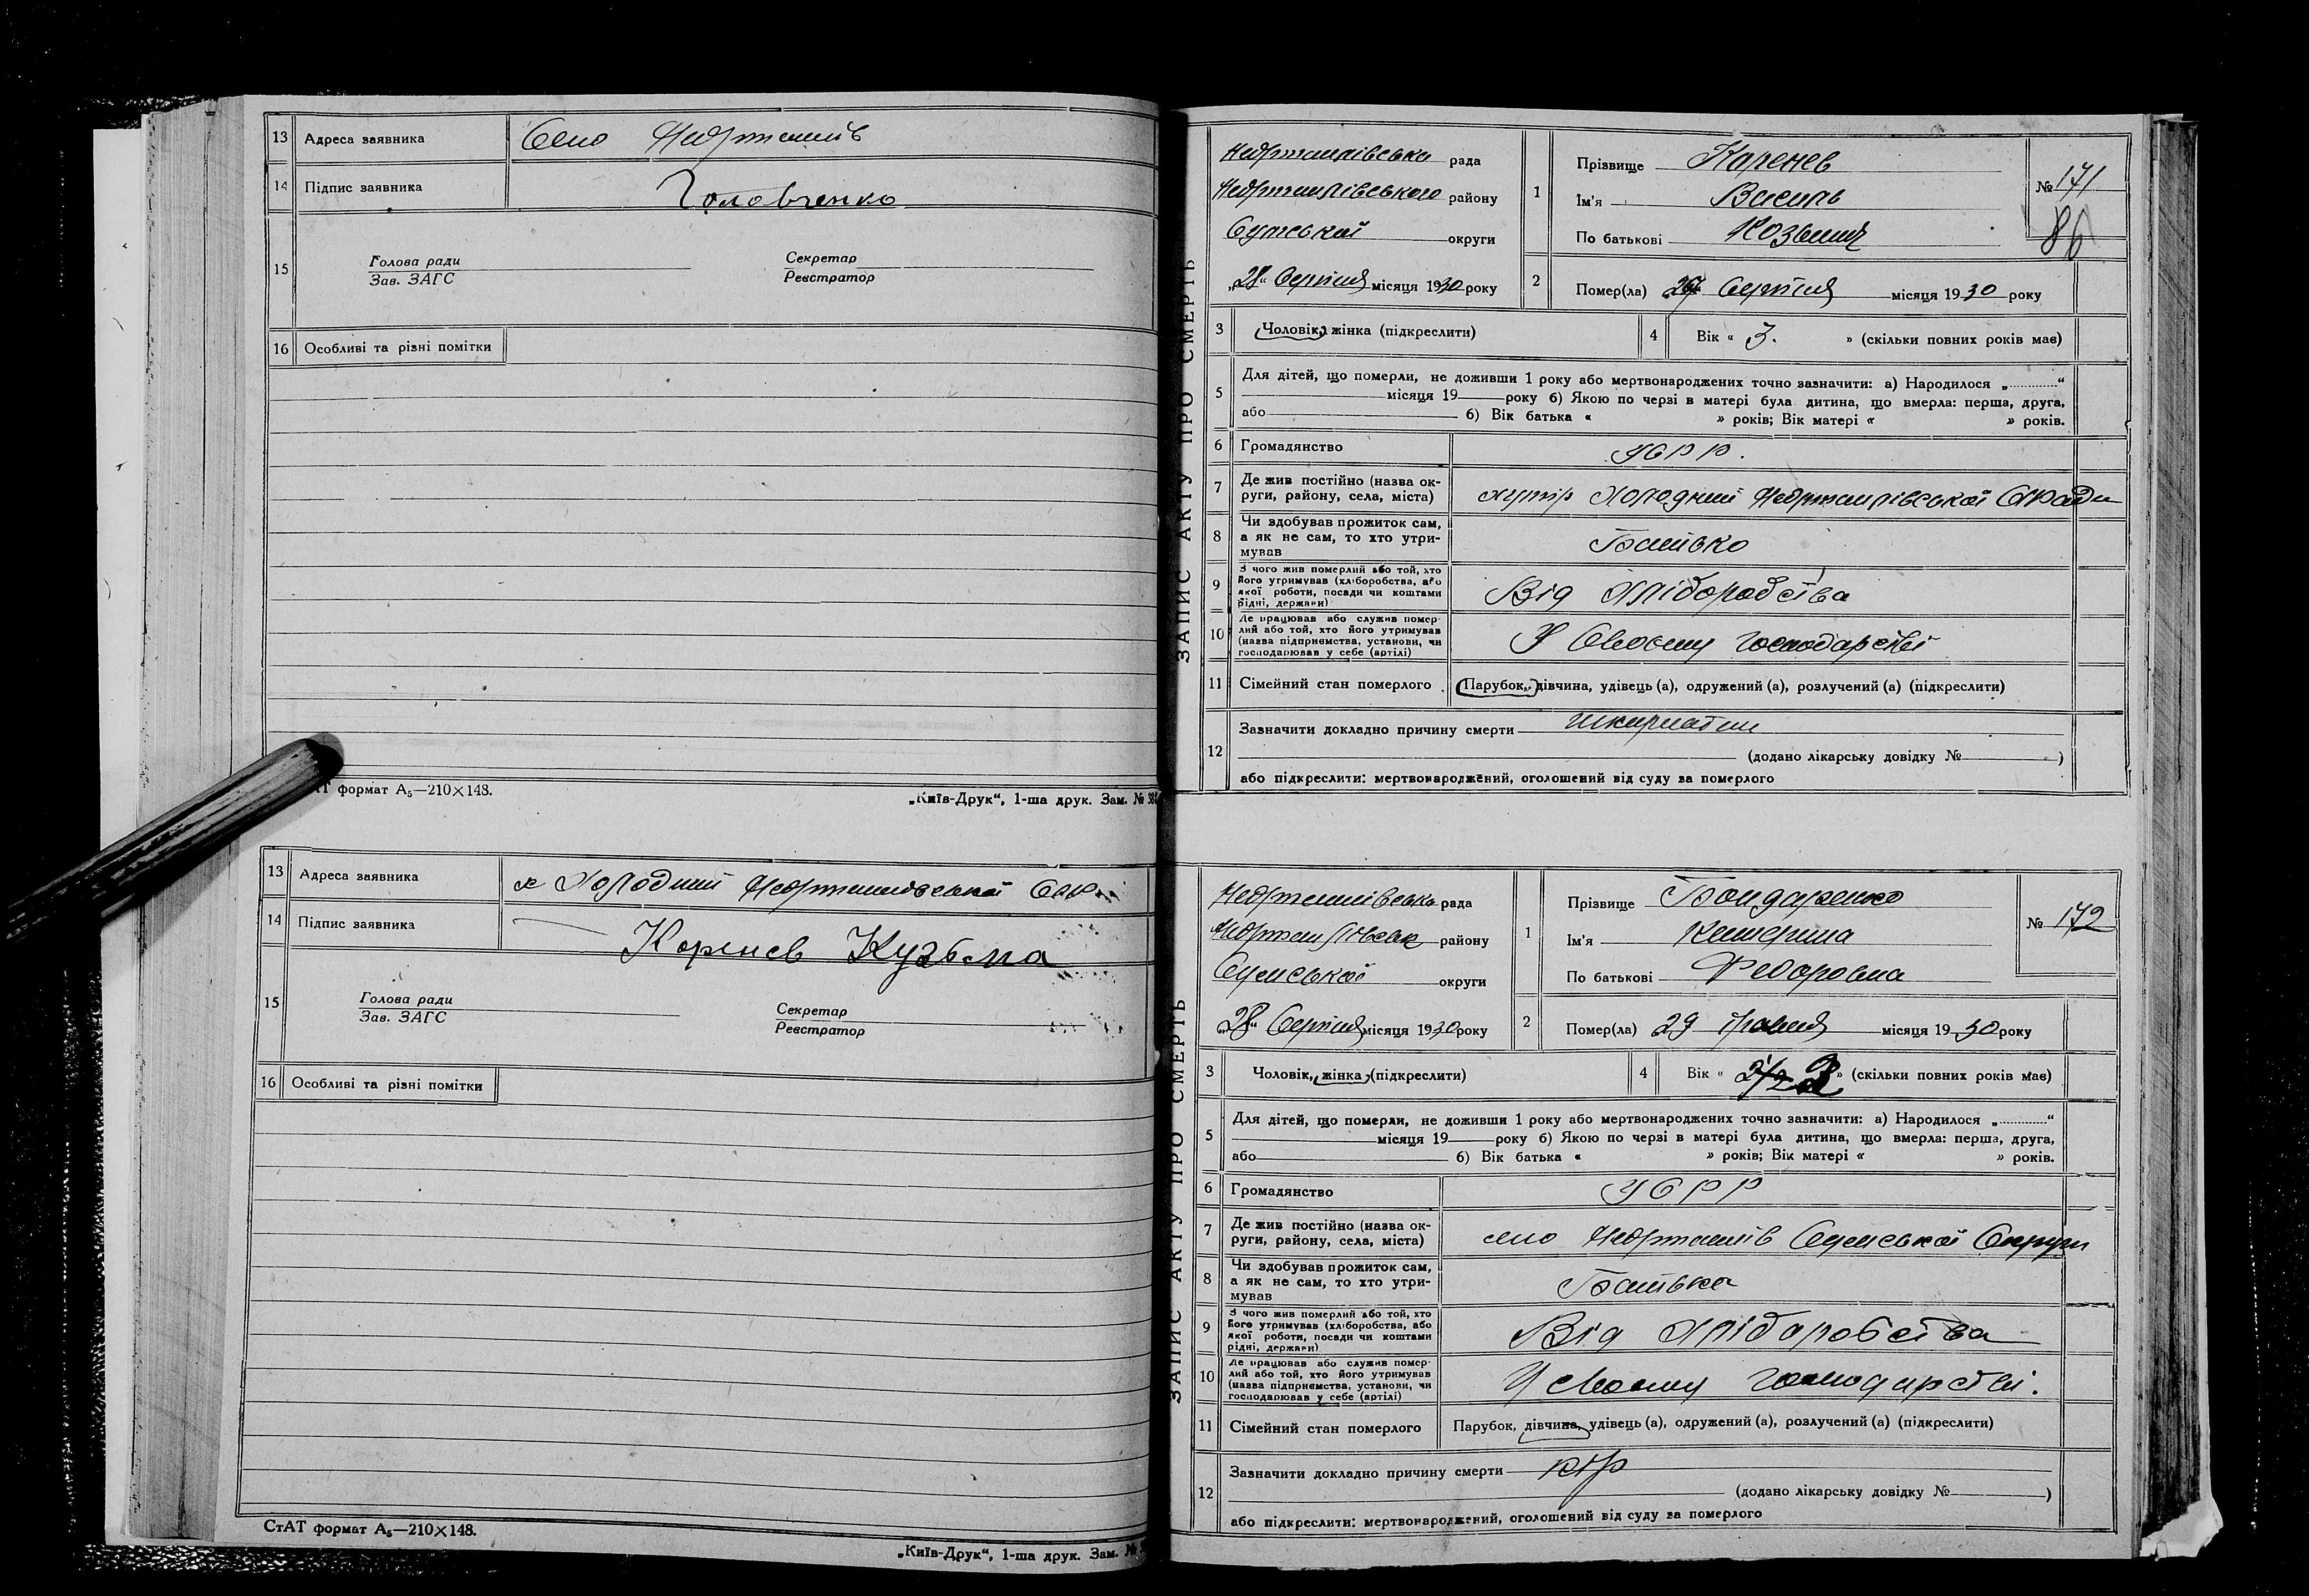 13 Адреса заявника Село Недригайлів
14 Підпис заявника Головченко
15 Голова ради Секретар
Зав. ЗАГС Реєстратор
16 Особливі та різні помітки
формат А₅—210×148.
„Київ-Друк“, 1-ша друк. Зам. №
13 Адреса заявника х Холодний Недригайлівської
14 Підпис заявника Коренев Кузьма
15 Голова ради Секретар
Зав. ЗАГС Реєстратор
16 Особливі та різні помітки
СтАТ формат А₅—210×148.
„Київ-Друк“, 1-ша друк. Зам. №
ЗАПИС АКТУ ПРО СМЕРТЬ
Недригайлівська рада
Недригайлівського району
Сумської округи
„28“ Серпня місяця 1930 року
1 Прізвище Коренев
Ім'я Василь
По батькові Козьмич
№ 171
86
2 Помер(ла) Серпня місяця 1930 року
3 Чоловік, жінка (підкреслити) 4 Вік « 3. » (скільки повних років має)
5 Для дітей, що померли, не доживши 1 року або мертвонароджених точно зазначити: а) Народилося „............“
місяця 19 року б) Якою по черзі в матері була дитина, що вмерла: перша, друга,
або б) Вік батька « » років; Вік матері « » років.
6 Громадянство УСРР.
7 Де жив постійно (назва ок-
руги, району, села, міста) хутір Холодний Недригайлівської С/Ради
8 Чи здобував прожиток сам,
а як не сам, то хто утри-
мував Батько
9 З чого жив померлий або той, хто
його утримував (хліборобства, або
якої роботи, посади чи коштами
рідні, держави) Від Хліборобства
10 Де працював або служив помер-
лий або той, хто його утримував
(назва підприємства, установи, чи
господарював у себе (артілі) У Своєму господарстві
11 Сімейний стан померлого Парубок, дівчина, удівець (а), одружений (а), розлучений (а) (підкреслити)
12 Зазначити докладно причину смерти шкарлатин
(додано лікарську довідку № )
або підкреслити: мертвонароджений, оголошений від суду за померлого
ЗАПИС АКТУ ПРО СМЕРТЬ
Недригайлівська рада
Недригайлівськ району
Сумської округи
„28“ Серпня місяця 1930 року
1 Прізвище Бондаренко
Ім'я Катерина
По батькові Федоровна
№ 172
2 Помер(ла) 29 травня місяця 1930 року
3 Чоловік, жінка, (підкреслити) 4 Вік « 2 » (скільки повних років має)
5 Для дітей, що померли, не доживши 1 року або мертвонароджених точно зазначити: а) Народилося „............“
місяця 19 року б) Якою по черзі в матері була дитина, що вмерла: перша, друга,
або б) Вік батька « » років; Вік матері « » років.
6 Громадянство УСРР
7 Де жив постійно (назва ок-
руги, району, села, міста) село Недригайлів Сумської Округи
8 Чи здобував прожиток сам,
а як не сам, то хто утри-
мував Батька
9 З чого жив померлий або той, хто
його утримував (хліборобства, або
якої роботи, посади чи коштами
рідні, держави) Від Хліборобства
10 Де працював або служив помер-
лий або той, хто його утримував
(назва підприємства, установи, чи
господарював у себе (артілі) У своєму господарстві.
11 Сімейний стан померлого Парубок, дівчина, удівець (а), одружений (а), розлучений (а) (підкреслити)
12 Зазначити докладно причину смерти кір
(додано лікарську довідку № )
або підкреслити: мертвонароджений, оголошений від суду за померлого